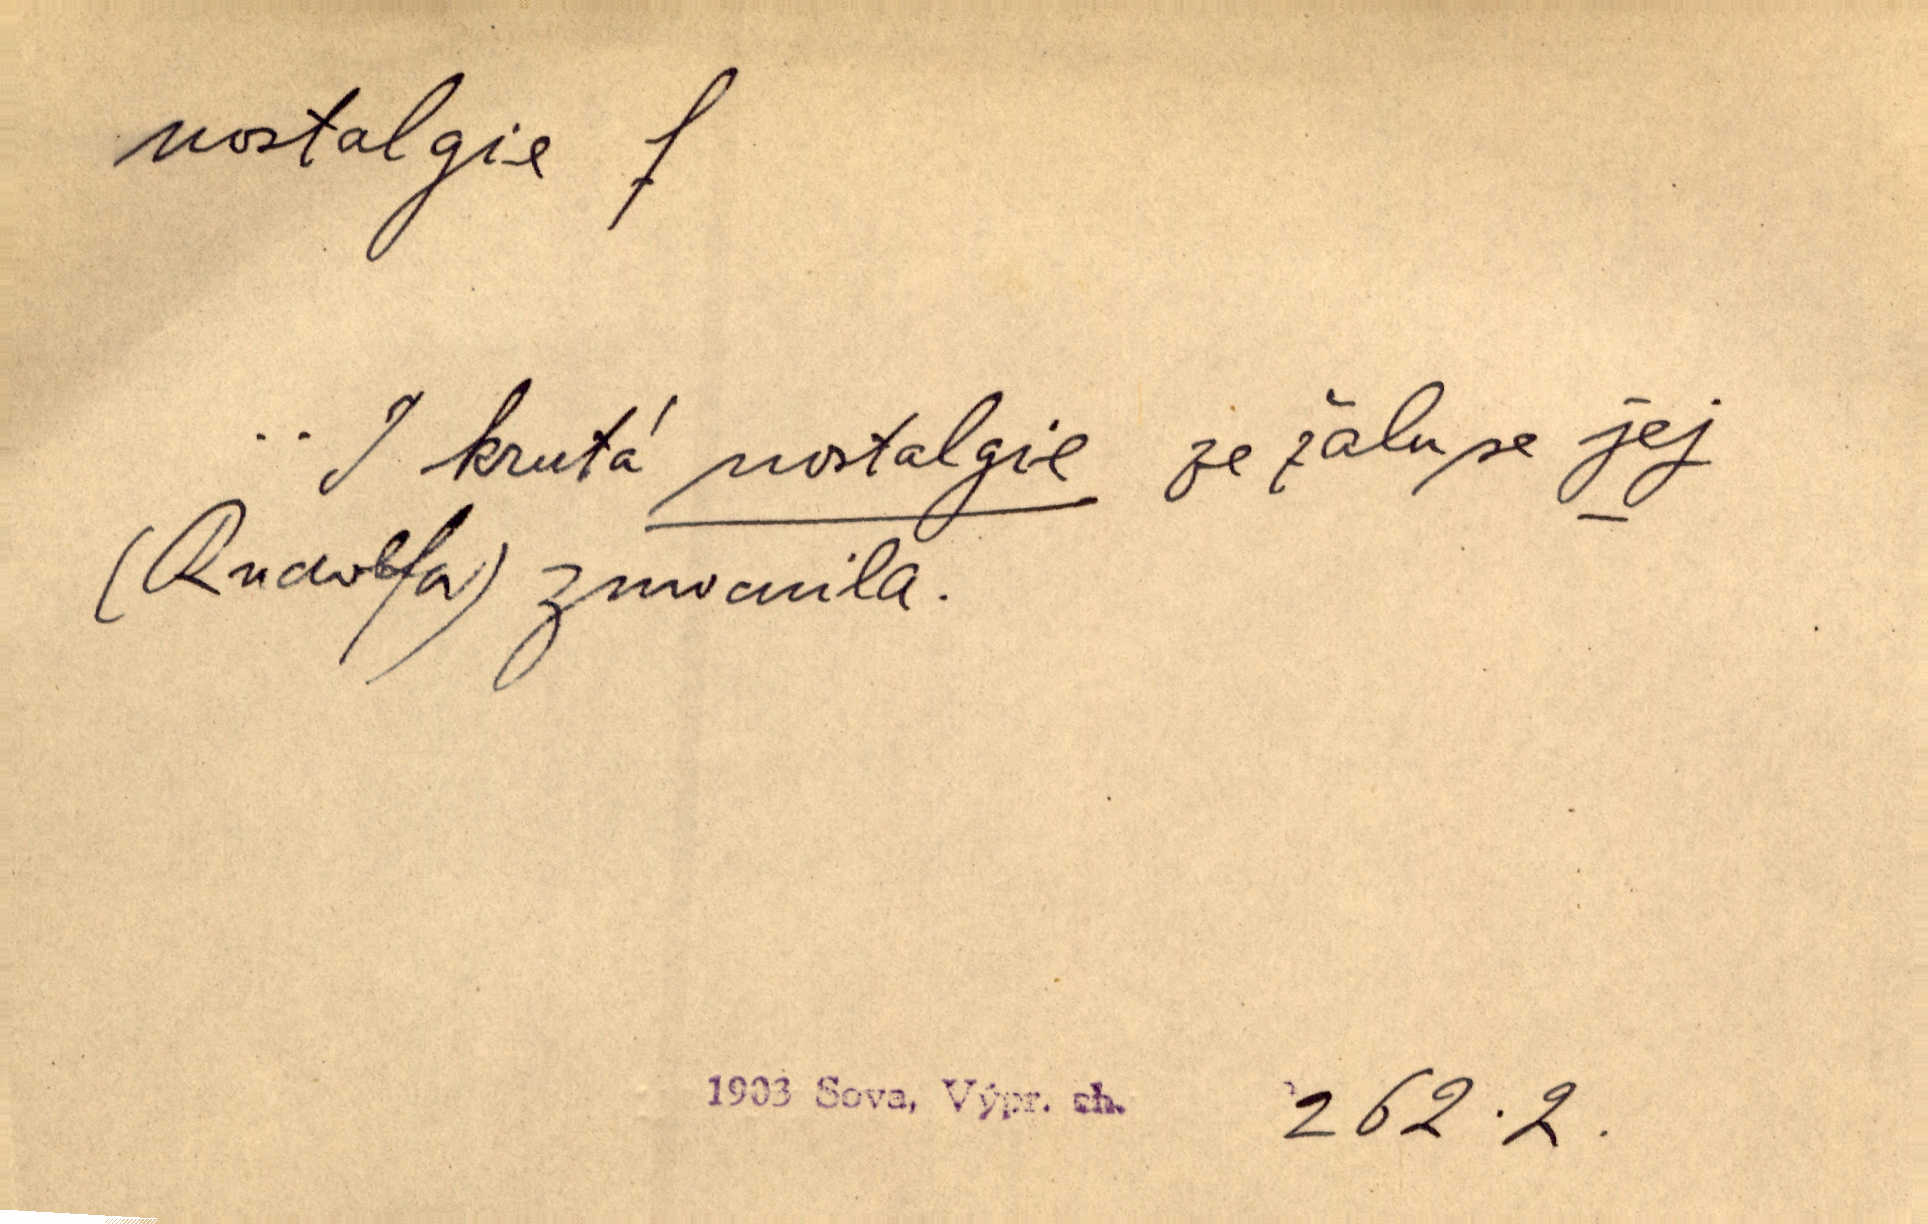 nostalgie f
.. I krutá nostalgie ze žalu se jej
(Rudolfa) zmocnila.
1903 Sova, Výpr. ch. 262.2.